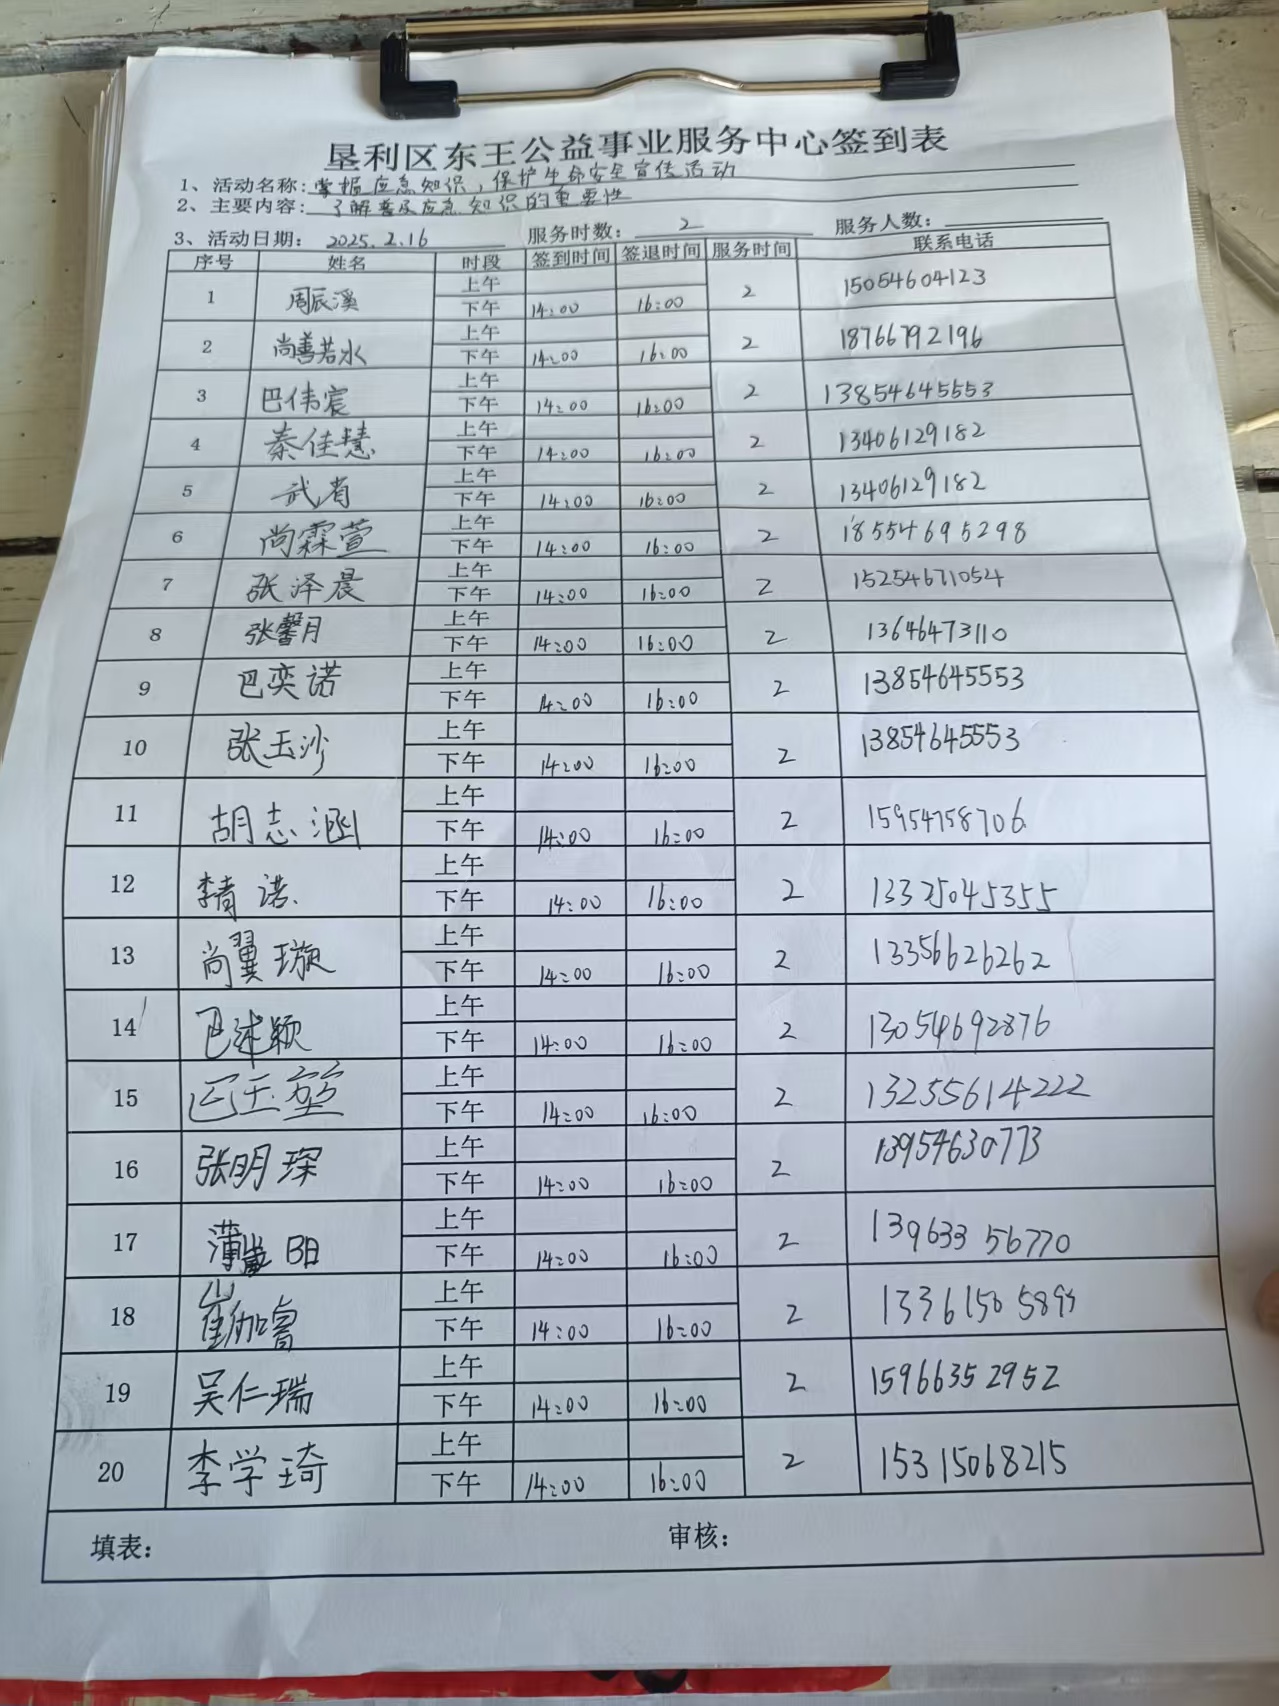 垦利区东王公益事业服务中心签到表
1、活动名称: 掌握应急知识，保护生命安全宣传活动
2、主要内容: 了解普及应急知识的重要性
3、活动日期: 2025.2.16 服务时数: 2 服务人数:
序号 姓名 时段 签到时间 签退时间 服务时间 联系电话
1 周辰溪 上午 2 15054604123
下午 14:00 16:00
2 尚善若水 上午 2 18766792196
下午 14:00 16:00
3 巴伟宸 上午 2 13854645553
下午 14:00 16:00
4 秦佳慧 上午 2 13406129182
下午 14:00 16:00
5 武肖 上午 2 13406129182
下午 14:00 16:00
6 尚霖萱 上午 2 18554695298
下午 14:00 16:00
7 张泽晨 上午 2 15254671054
下午 14:00 16:00
8 张馨月 上午 2 13646473110
下午 14:00 16:00
9 巴奕诺 上午 2 13854645553
下午 14:00 16:00
10 张玉沙 上午 2 13854645553
下午 14:00 16:00
11 胡志涵 上午 2 15954758706
下午 14:00 16:00
12 李青诺 上午 2 13325045355
下午 14:00 16:00
13 尚翼璇 上午 2 13356626262
下午 14:00 16:00
14 巴述颖 上午 2 13054692876
下午 14:00 16:00
15 巴玉堃 上午 2 13255614222
下午 14:00 16:00
16 张明琛 上午 2 13954630773
下午 14:00 16:00
17 薄 上午 2 13963356770
下午 14:00 16:00
18 崔伽睿 上午 2
下午 14:00 16:00
19 吴仁瑞 上午 2 15966352952
下午 14:00 16:00
20 李学琦 上午 2 15315068215
下午 14:00 16:00
填表: 审核: